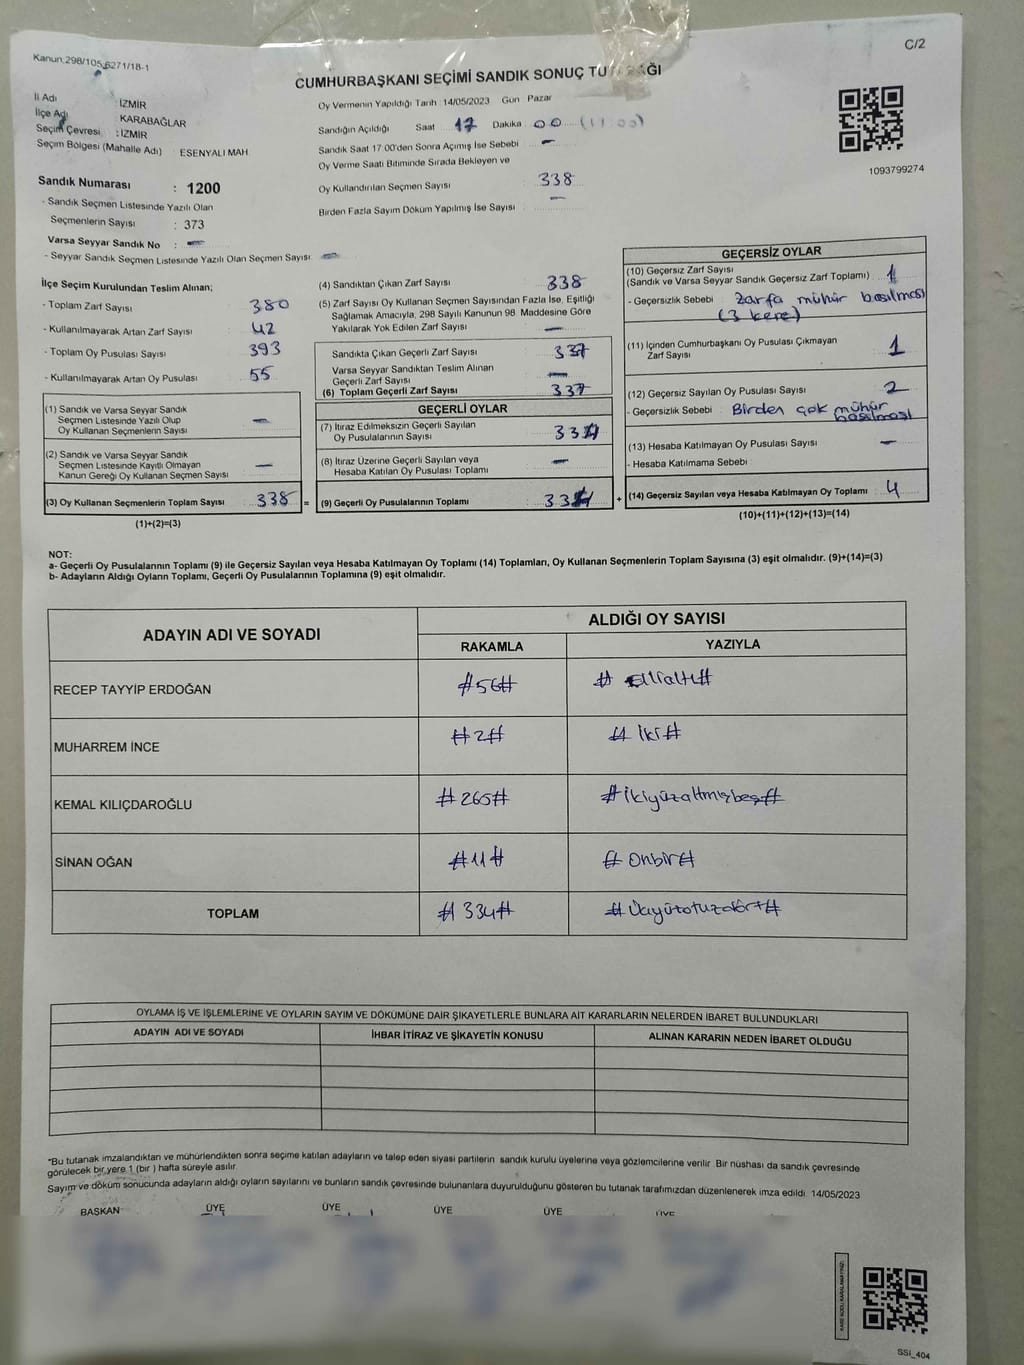 C/2
Kanun.298/105,6271/18-1
CUMHURBAŞKANI SEÇİMİ SANDIK SONUÇ
İl Adı İZMİR
İlçe Adı KARABAĞLAR
Seçim Çevresi : İZMİR
Seçim Bölgesi (Mahalle Adı) ESENYALI MAH.
Oy Vermenin Yapıldığı Tarih 14/05/2023 Gün Pazar
Sandığın Açıldığı Saat 17 Dakika 00 (17:00)
Sandık Saat 17 00'den Sonra Açımış İse Sebebi —
Oy Verme Saati Bitiminde Sırada Bekleyen ve
Oy Kullandırılan Seçmen Sayısı 338
Birden Fazla Sayım Döküm Yapılmış İse Sayısı —
1093799274
Sandık Numarası : 1200
- Sandık Seçmen Listesinde Yazılı Olan
Seçmenlerin Sayısı : 373
Varsa Seyyar Sandık No : —
- Seyyar Sandık Seçmen Listesinde Yazılı Olan Seçmen Sayısı: —
İlçe Seçim Kurulundan Teslim Alınan;
- Toplam Zarf Sayısı 380
- Kullanılmayarak Artan Zarf Sayısı 42
- Toplam Oy Pusulası Sayısı 393
- Kullanılmayarak Artan Oy Pusulası 55
(1) Sandık ve Varsa Seyyar Sandık
Seçmen Listesinde Yazılı Olup
Oy Kullanan Seçmenlerin Sayısı —
(2) Sandık ve Varsa Seyyar Sandık
Seçmen Listesinde Kayıtlı Olmayan
Kanun Gereği Oy Kullanan Seçmen Sayısı —
(3) Oy Kullanan Seçmenlerin Toplam Sayısı 338 =
(1)+(2)=(3)
(4) Sandıktan Çıkan Zarf Sayısı 338
(5) Zarf Sayısı Oy Kullanan Seçmen Sayısından Fazla İse, Eşitliği
Sağlamak Amacıyla, 298 Sayılı Kanunun 98. Maddesine Göre
Yakılarak Yok Edilen Zarf Sayısı —
Sandıkta Çıkan Geçerli Zarf Sayısı 337
Varsa Seyyar Sandıktan Teslim Alınan
Geçerli Zarf Sayısı —
(6) Toplam Geçerli Zarf Sayısı 337
GEÇERLİ OYLAR
(7) İtiraz Edilmeksizin Geçerli Sayılan
Oy Pusulalarının Sayısı 334
(8) İtiraz Üzerine Geçerli Sayılan veya
Hesaba Katılan Oy Pusulası Toplamı —
(9) Geçerli Oy Pusulalarının Toplamı 334 +
GEÇERSİZ OYLAR
(10) Geçersiz Zarf Sayısı
(Sandık ve Varsa Seyyar Sandık Geçersiz Zarf Toplamı) 1
- Geçersizlik Sebebi Zarfa mühür basılması
(3 kere)
(11) İçinden Cumhurbaşkanı Oy Pusulası Çıkmayan
Zarf Sayısı 1
(12) Geçersiz Sayılan Oy Pusulası Sayısı 2
- Geçersizlik Sebebi : Birden çok mühür
basılması
(13) Hesaba Katılmayan Oy Pusulası Sayısı —
- Hesaba Katılmama Sebebi :
(14) Geçersiz Sayılan veya Hesaba Katılmayan Oy Toplamı : 4
(10)+(11)+(12)+(13)=(14)
NOT:
a- Geçerli Oy Pusulalarının Toplamı (9) ile Geçersiz Sayılan veya Hesaba Katılmayan Oy Toplamı (14) Toplamları, Oy Kullanan Seçmenlerin Toplam Sayısına (3) eşit olmalıdır. (9)+(14)=(3)
b- Adayların Aldığı Oyların Toplamı, Geçerli Oy Pusulalarının Toplamına (9) eşit olmalıdır.
ADAYIN ADI VE SOYADI ALDIĞI OY SAYISI
RAKAMLA YAZIYLA
RECEP TAYYİP ERDOĞAN #56# # Ellialtı#
MUHARREM İNCE #2# # İki#
KEMAL KILIÇDAROĞLU #265# #ikiyüzaltmışbeş#
SİNAN OĞAN #11# # Onbir#
TOPLAM #334# # Üçyüzotuzdört#
OYLAMA İŞ VE İŞLEMLERİNE VE OYLARIN SAYIM VE DÖKÜMÜNE DAİR ŞİKAYETLERLE BUNLARA AİT KARARLARIN NELERDEN İBARET BULUNDUKLARI
ADAYIN ADI VE SOYADI İHBAR İTİRAZ VE ŞİKAYETİN KONUSU ALINAN KARARIN NEDEN İBARET OLDUĞU
*Bu tutanak imzalandıktan ve mühürlendikten sonra seçime katılan adayların ve talep eden siyasi partilerin sandık kurulu üyelerine veya gözlemcilerine verilir. Bir nüshası da sandık çevresinde
görülecek bir yere 1 (bir ) hafta süreyle asılır.
Sayım ve döküm sonucunda adayların aldığı oyların sayılarını ve bunların sandık çevresinde bulunanlara duyurulduğunu gösteren bu tutanak tarafımızdan düzenlenerek imza edildi. 14/05/2023
BAŞKAN ÜYE ÜYE ÜYE ÜYE ÜYE
SSI_404